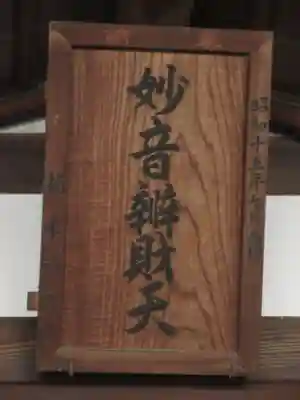 昭和十五年
妙音辨財天